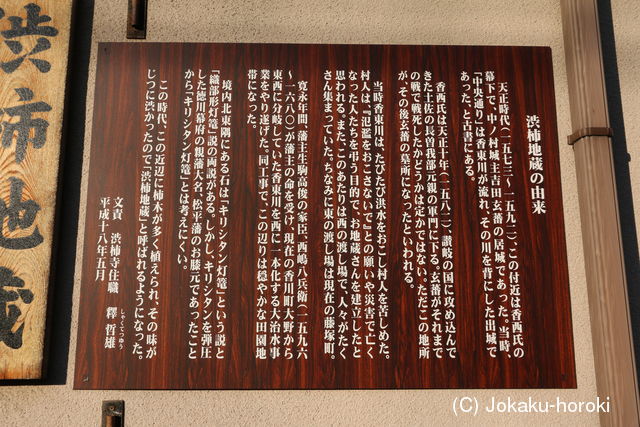 渋柿地蔵
渋柿地蔵の由来
天正時代(一五七三~一五九二)、この付近は香西氏の
幕下で、中ノ村城主吉田玄蕃の居城であった。当時、
「中央通り」は香東川が流れ、その川を背にした出城で
あった、と古書にある。
香西氏は天正十年(一五八二)、讃岐の国に攻め込んで
きた土佐の長曽我部元親の軍門に下る。玄蕃がそれまで
の戦で戦死したかどうかは定かではない。ただこの地所
が、その後玄蕃の墓所になったといわれる。
当時香東川は、たびたび洪水をおこし村人を苦しめた。
村人は『氾濫をおこさないで』との願いや災害で亡く
なった人たちを弔う目的で、お地蔵さんを建立したと
思われる。また、このあたりは西の渡し場で、人々がたく
さん集まっていた。ちなみに東の渡し場は現在の藤塚町。
寛永年間、藩主生駒高俊の家臣、西嶋八兵衛(一五九六
~一六八〇)が藩主の命を受け、現在の香川町大野から
東西に分岐していた香東川を西に一本化する大治水事
業をやり遂げた。同工事で、この辺りは穏やかな田園地
帯になった。
境内北東隅にある石は『キリシタン灯篭』という説と
『織部形灯篭』説の両説がある。しかし、キリシタンを弾圧
した徳川幕府の親藩大名、松平藩のお膝元であったこと
から『キリシタン灯篭』とは考えにくい。
この時代、この近辺に柿木が多く植えられ、その味が
じつに渋かったので『渋柿地蔵』と呼ばれるようになった。
平成十八年五月
文責 渋柿寺住職 釋 哲雄
しゃくてつゆう
(C) Jokaku-horoki